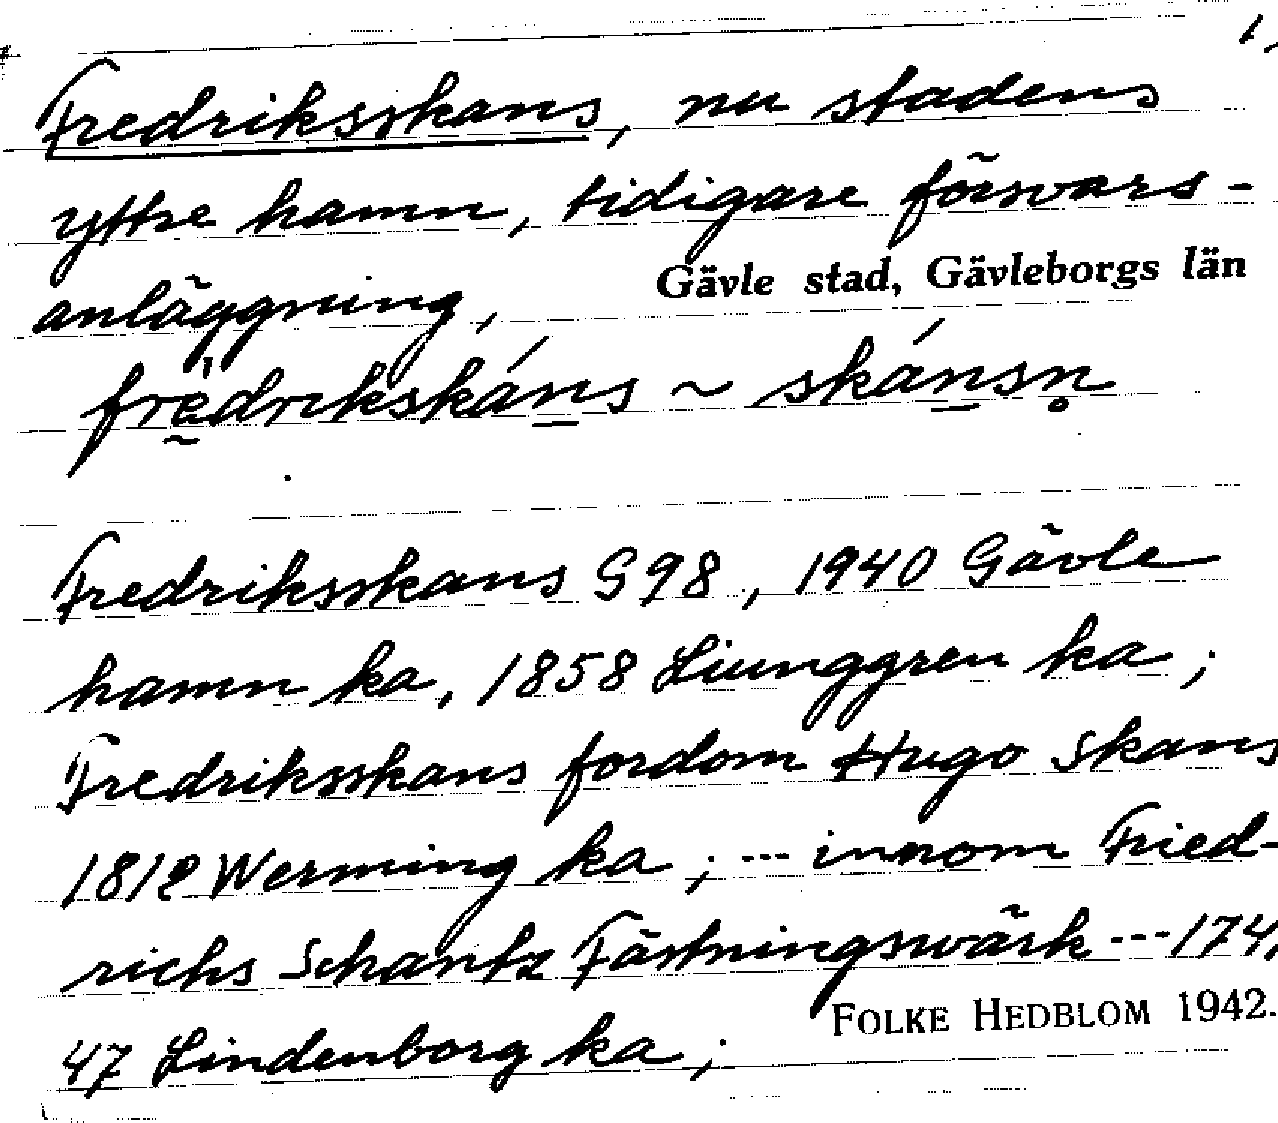 1,
Fredriksskans, nu stadens
yttre hamn, tidigare försvars-
anläggning,
Gävle stad, Gävleborgs län
frèdrikskáns ~ skánsn̥
Fredriksskans G98, 1940 Gävle
hamn ka, 1858 Liunggren ka;
Fredriksskans fordom Hugo Skans
1812 Werming ka; --- innom Fried-
richs Schantz Fästningswärk --- 174,
47 Lindenborg ka;
FOLKE HEDBLOM 1942.